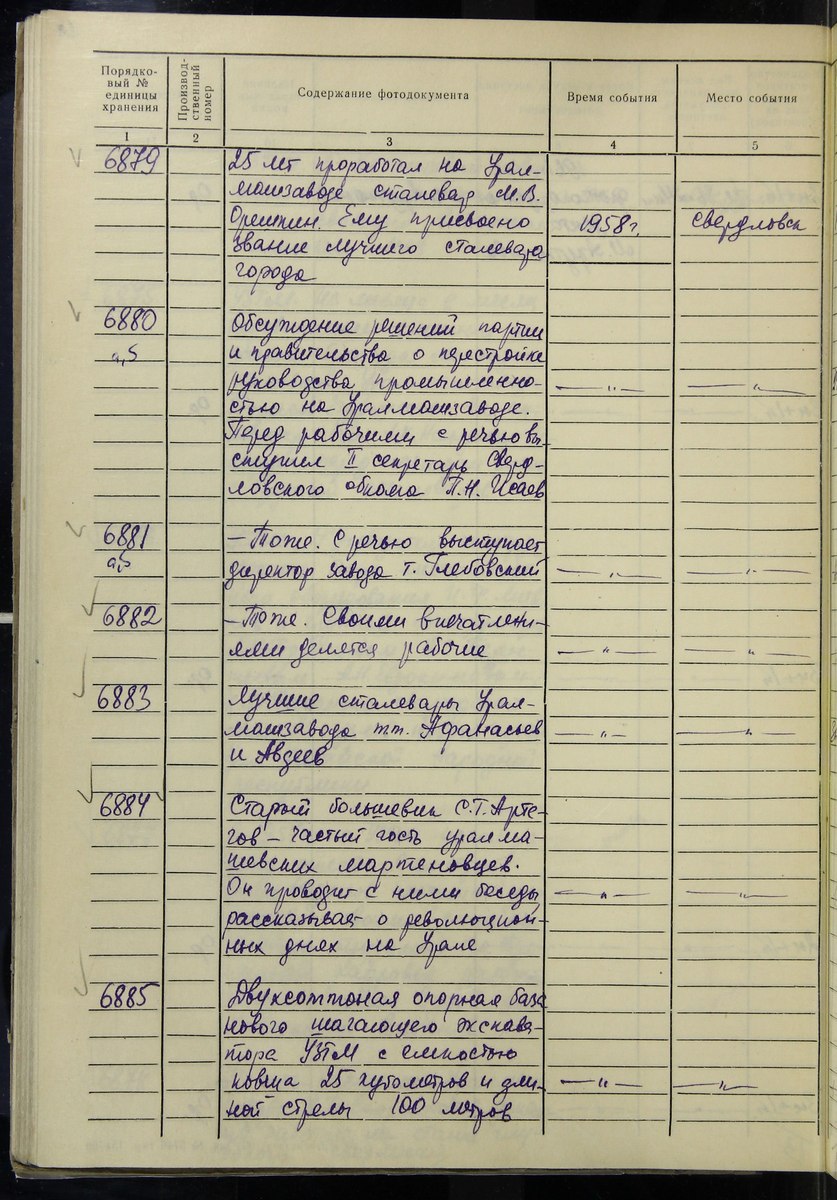 Порядко-
вый №
единицы
хранения
Производ-
ственный
номер
Содержание фотодокумента
Время события
Место события
1
2
3
4
5
6879
25 лет проработал на Урал-
машзаводе сталевар М.В.
Ему присвоено
1958 г.
Свердловск
звание лучшего сталевара
города
6880
Обсуждение решений партии
а,б
и правительства о перестройке
руководства промышленно-
— " —
— " —
стью на Уралмашзаводе.
Перед рабочими с речью вы-
ступил II секретарь Сверд-
ловского обкома П.Н. Исаев
6881
— Тоже. С речью выступает
а,б
директор завода т. Глебовский
— " —
— " —
6882
— Тоже. Своими впечатлени-
ями делятся рабочие
— " —
— " —
6883
Лучшие сталевары Урал-
машзавода тт. Афанасьев
— " —
— " —
и Авдеев
6884
Старый большевик С.Т. Арте-
гов — частый гость уралма-
шевских мартеновцев.
Он проводит с ними беседы
— " —
— " —
рассказывает о революцион-
ных днях на Урале
6885
Двухсоттоная опорная база
нового шагающего экскава-
тора УЗТМ с емкостью
ковша 25 кубометров и дли-
— " —
— " —
ной стрелы 100 метров